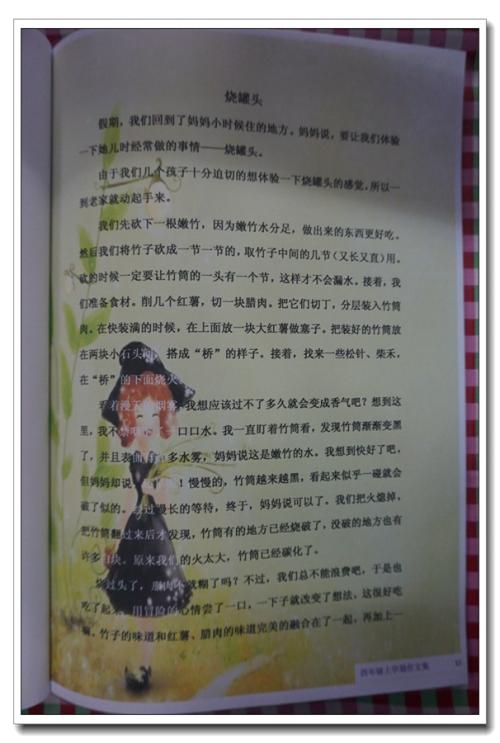 烧罐头
假期，我们回到了妈妈小时候住的地方。妈妈说，要让我们体验
一下她儿时经常做的事情——烧罐头。
由于我们几个孩子十分迫切的想体验一下烧罐头的感觉，所以一
到老家就动起手来。
我们先砍下一根嫩竹，因为嫩竹水分足，做出来的东西更好吃。
然后我们将竹子砍成一节一节的，取竹子中间的几节（又长又直）用。
砍的时候一定要让竹筒的一头有一个节，这样才不会漏水。接着，我
们准备食材。削几个红薯，切一块腊肉。把它们切丁，分层装入竹筒
肉。在快装满的时候，在上面放一块大红薯做塞子。把装好的竹筒放
在两块小石头间，搭成“桥”的样子。接着，找来一些松针、柴禾，
在“桥”的下面烧火。
看着漫天的烟雾，我想应该过不了多久就会变成香气吧？想到这
里，我不禁咽了一口口水。我一直盯着竹筒看，发现竹筒渐渐变黑
了，并且表面有多水雾，妈妈说这是嫩竹的水。我想到快好了吧，
但妈妈却说！慢慢的，竹筒越来越黑，看起来似乎一碰就会
破了似的。经过漫长的等待，终于，妈妈说可以了。我们把火熄掉，
把竹筒翻过来后才发现，竹筒有的地方已经烧破了，没破的地方也有
许多白块。原来我们的火太大，竹筒已经碳化了。
烧过头了，腊肉不就糊了吗？不过，我们总不能浪费吧，于是也
吃了起来。用冒险的心情尝了一口，一下子就改变了想法，这很好吃
嘛。竹子的味道和红薯、腊肉的味道完美的融合在了一起，再加上一
四年级上学期作文集